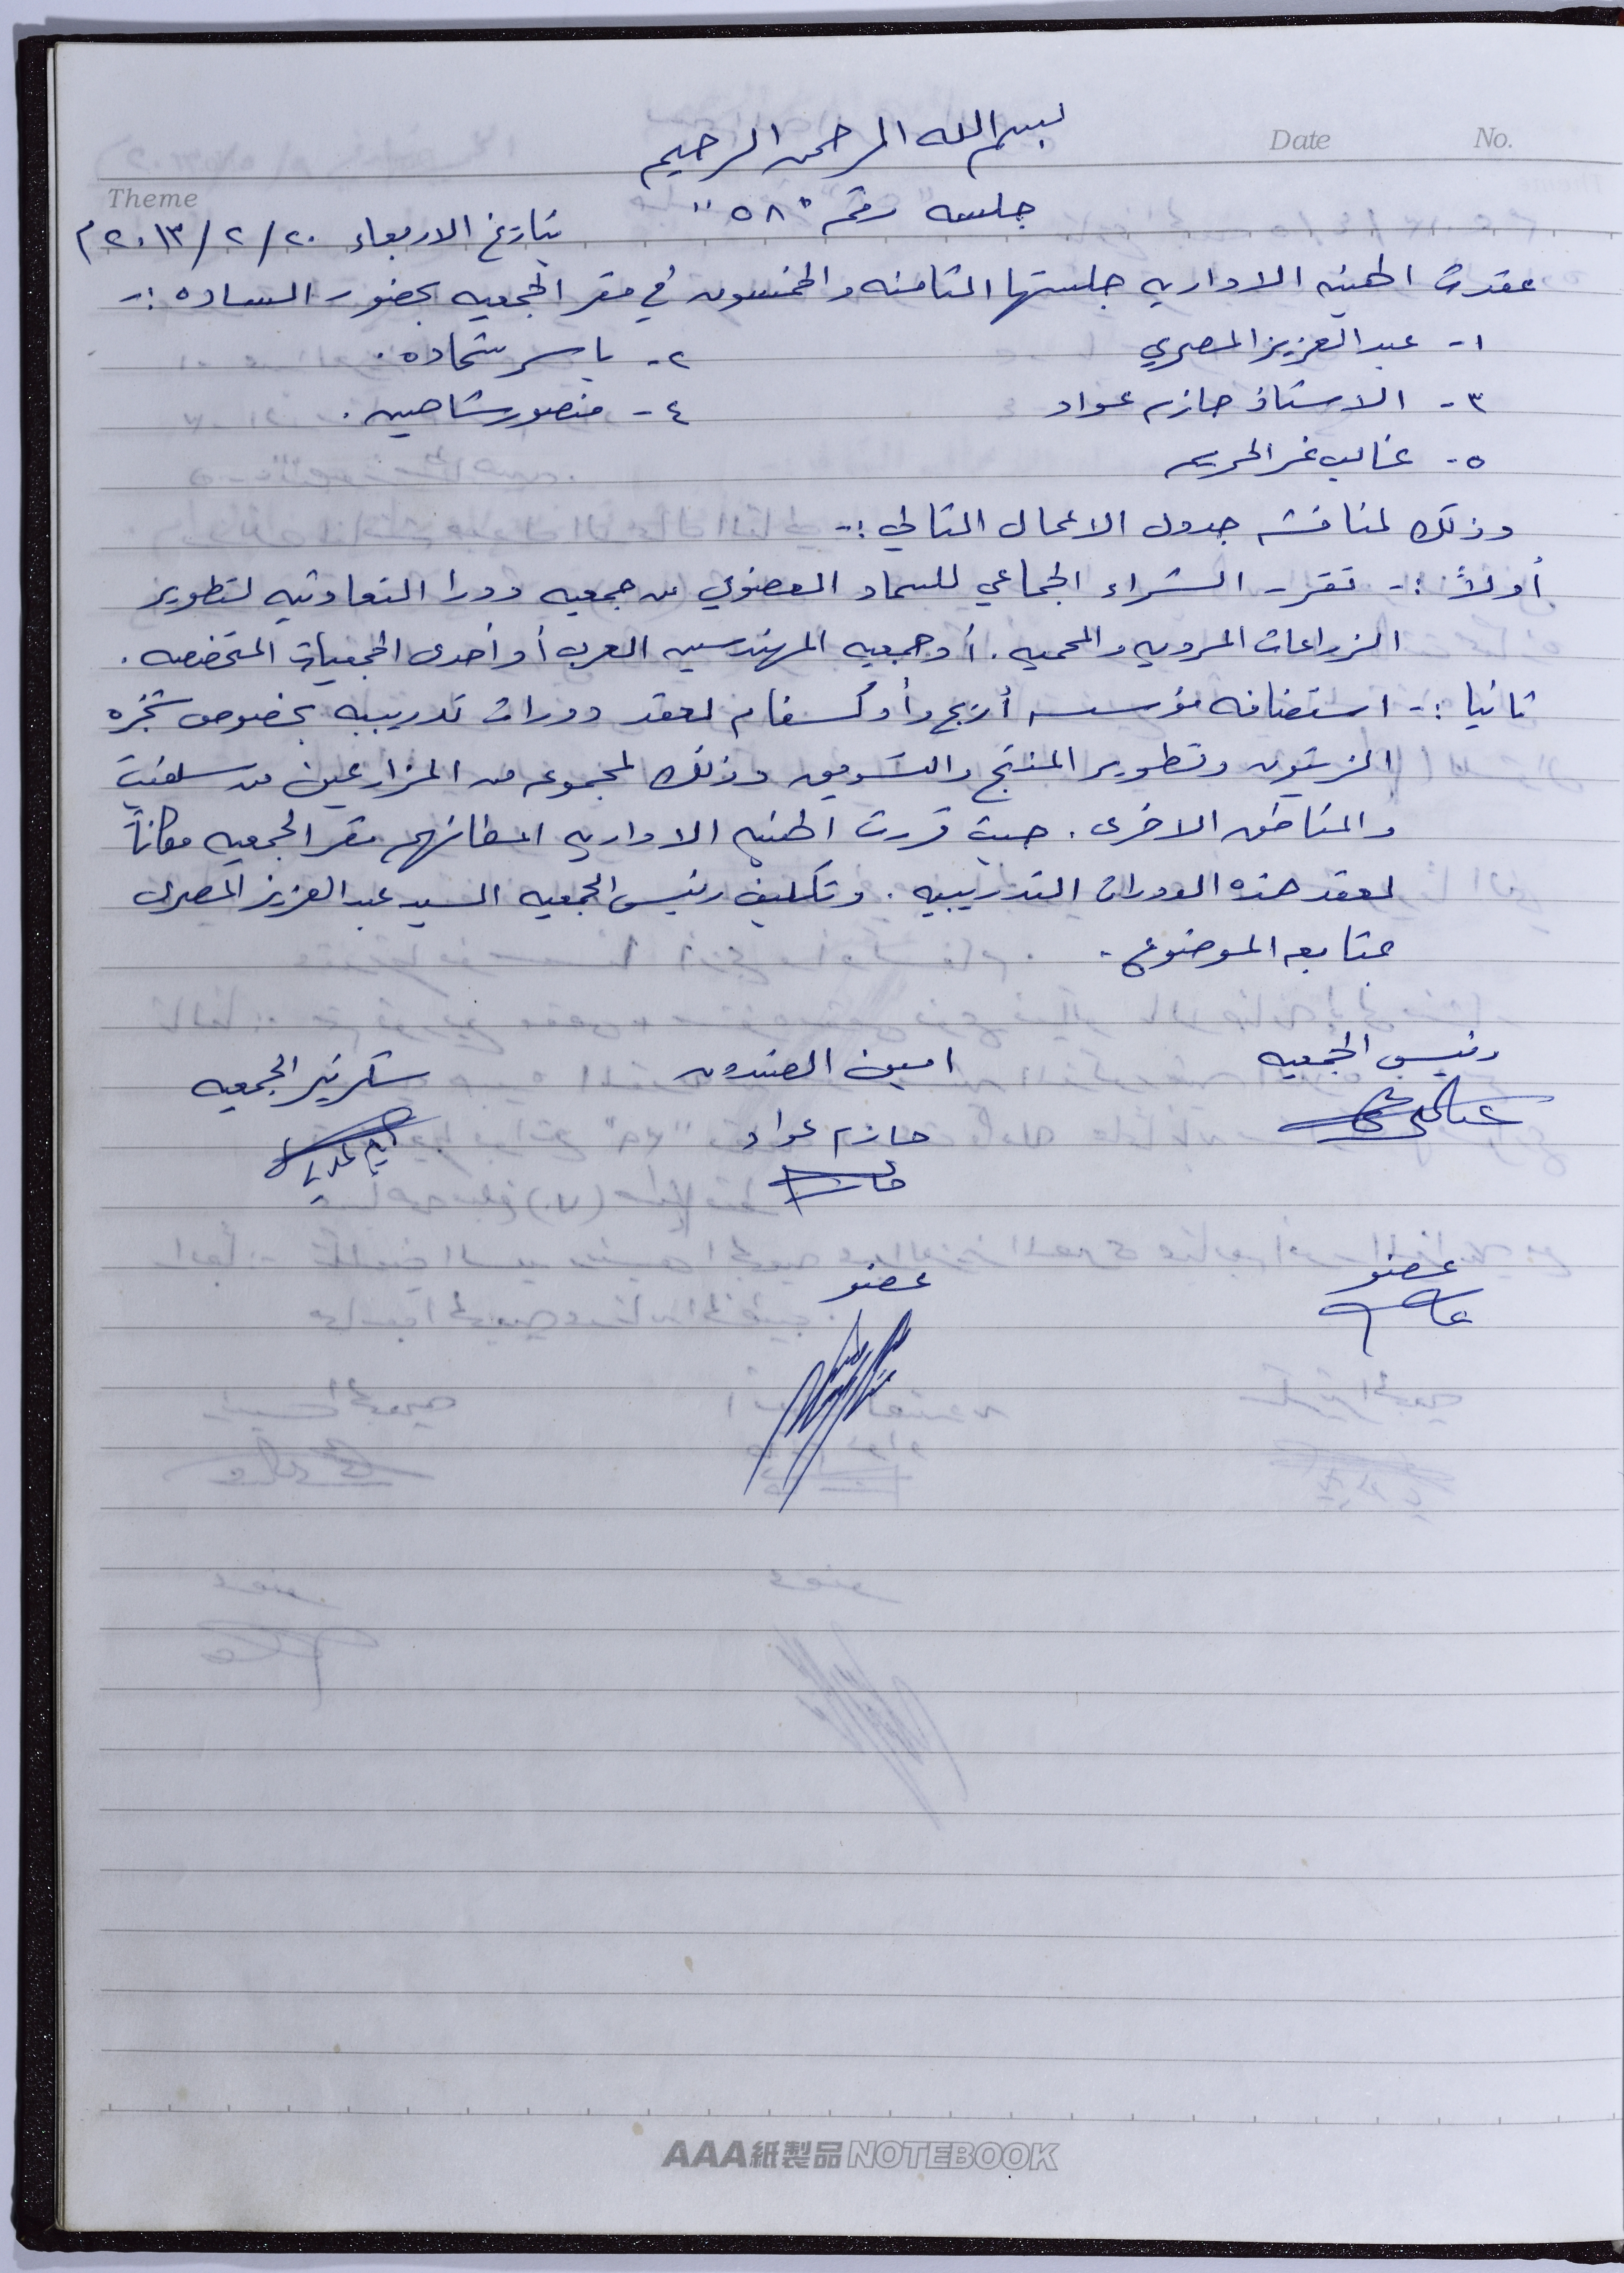 بسم الله الرحمن الرحيم
Date No.
Theme
جلسه رقم "٥٨"
بتاريخ الاربعاء ٢٠/٢/٢٠١٣م
عقدت الهيئه الاداريه جلستها الثامنه والخمسون في مقر الجمعيه بحضور الساده :-
١- عبد العزيز المصري ٢- ياسر شحاده .
٣- الاستاذ حازم عواد ٤- منصور شاهين .
٥- غالب
وذلك لمناقشه جدول الاعمال التالي :-
أولاً :- تقرر الشراء الجماعي للسماد العضوي من جمعيه دورا التعاونيه لتطوير
الزراعات المرويه والمحميه . أو جمعيه المهندسين العرب أو أحدى الجمعيات المتخصصه .
ثانيا :- استضافه مؤسسه أريج وأوكسفام لعقد دورات تدريبيه بخصوص شجره
الزيتون وتطوير المنتج والتسويق وذلك لمجموعه من المزارعين من سلفيت
والمناطق الاخرى . حيث قررت الهيئه الاداريه مقر الجمعيه مكاناً
لعقد هذه الدورات التدريبيه . وتكليف رئيس الجمعيه السيد عبد العزيز المصري
بمتابعه الموضوع .
رئيس الجمعيه امين الصندوق سكرتير الجمعيه
حازم عواد
عضو عضو
AAA紙製品NOTEBOOK